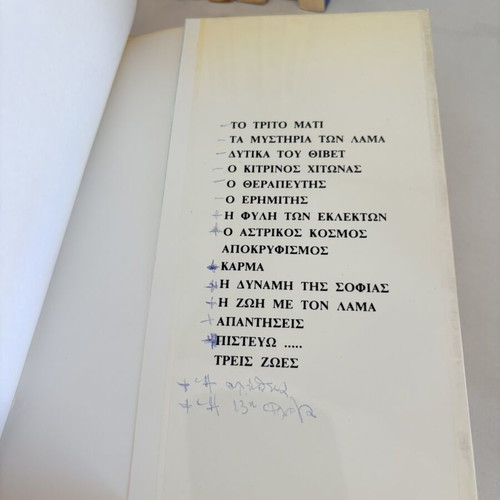 – ΤΟ ΤΡΙΤΟ ΜΑΤΙ
– ΤΑ ΜΥΣΤΗΡΙΑ ΤΩΝ ΛΑΜΑ
– ΔΥΤΙΚΑ ΤΟΥ ΘΙΒΕΤ
– Ο ΚΙΤΡΙΝΟΣ ΧΙΤΩΝΑΣ
– Ο ΘΕΡΑΠΕΥΤΗΣ
– Ο ΕΡΗΜΙΤΗΣ
+ Η ΦΥΛΗ ΤΩΝ ΕΚΛΕΚΤΩΝ
+ Ο ΑΣΤΡΙΚΟΣ ΚΟΣΜΟΣ
ΑΠΟΚΡΥΦΙΣΜΟΣ
+ ΚΑΡΜΑ
+ Η ΔΥΝΑΜΗ ΤΗΣ ΣΟΦΙΑΣ
+ Η ΖΩΗ ΜΕ ΤΟΝ ΛΑΜΑ
+ ΑΠΑΝΤΗΣΕΙΣ
+ ΠΙΣΤΕΥΩ .....
ΤΡΕΙΣ ΖΩΕΣ
+ Η
+ Η 13η